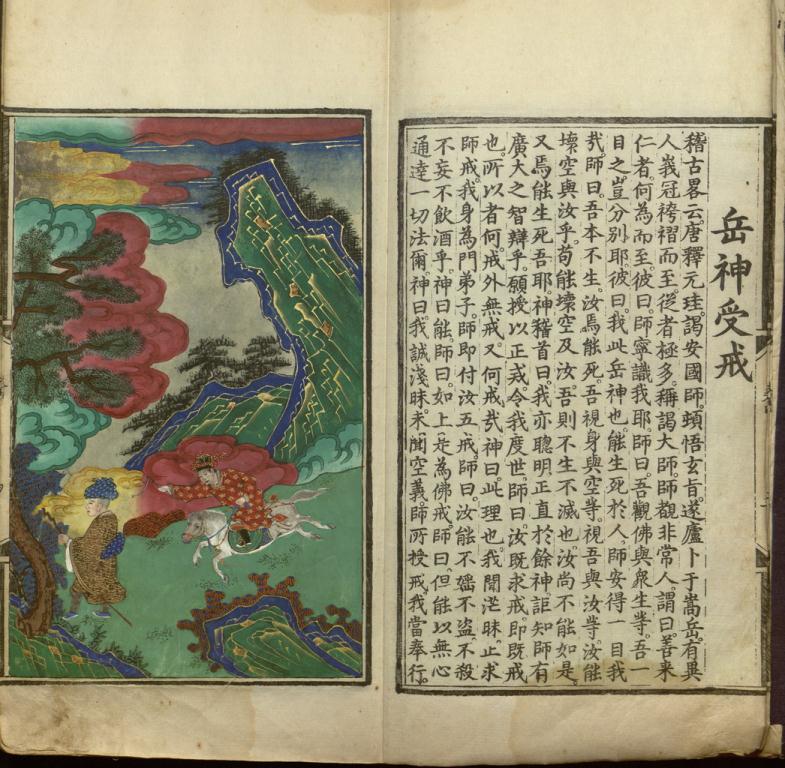 岳神受戒
稽古畧云。唐釋元珪。謁安國師。頓悟玄旨。遂廬卜于嵩岳。有異
人峩冠袴褶而至。從者極多。稱謁大師。師覩非常人。謂曰。善來
仁者。何為而至。彼曰。師寧識我耶。師曰。吾觀佛與衆生等。吾一
目之。豈分別耶。彼曰。我此岳神也。能生死於人。師安得一目我
㦲。師曰。吾本不生。汝焉能死。吾視身與空等。視吾與汝等。汝能
壞空與汝乎。茍能壞空及汝。吾則不生不滅也。汝尚不能如是。
又焉能生死吾耶。神稽首曰。我亦聰明正直於餘神。詎知師有
廣大之智辯乎。願授以正戒。令我度世。師曰。汝既求戒。即既戒
也。所以者何。戒外無戒。又何戒㦲。神曰。此理也。我聞茫昧。止求
師戒。我身為門弟子。師即付汝五戒。師曰。汝能不婬不盗不殺
不妄不飲酒乎。神曰能。師曰。如上是為佛戒。師曰。但能以無心
通達一切法爾。神曰。我誠淺昧。未聞空義。師所授戒。我當奉行。